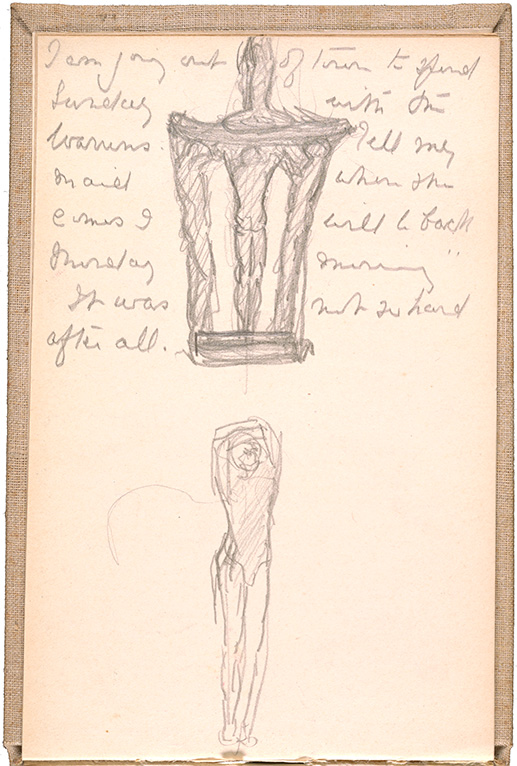 I am going out of town to spend
Sunday with the
Warrens. Tell my
maid when she
comes I will be back
Monday morning"
It was not so hard
after all.